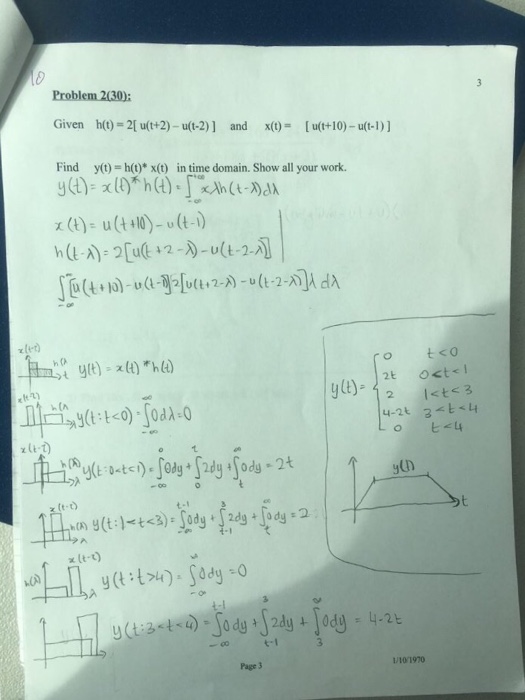 10
3
Problem 2(30):
Given h(t) = 2[ u(t+2) – u(t-2) ] and x(t) = [ u(t+10) – u(t-1) ]
Find y(t) = h(t)* x(t) in time domain. Show all your work.
y(t) = x(t) * h(t) = ∫_{-∞}^{+∞} xλh(t-λ)dλ
x(t) = u(t+10) - u(t-1)
h(t-λ) = 2[u(t+2-λ) - u(t-2-λ)]
∫_{-∞}^{∞} [u(t+10) - u(t-1)]2[u(t+2-λ) - u(t-2-λ)]λ dλ
x(t-τ) h(λ) t y(t) = x(t) * h(t)
x(t-τ) h(λ) λ y(t:t<0) = ∫_{-∞}^{∞} 0dλ = 0
x(t-τ) h(λ) λ y(t:0<t<1) = ∫_{-∞}^{0} 0dy + ∫_{0}^{t} 2dy + ∫_{t}^{∞} 0dy = 2t
x(t-τ) h(λ) λ y(t:1<t<3) = ∫_{-∞}^{t-1} 0dy + ∫_{t-1}^{3} 2dy + ∫_{t}^{∞} 0dy = 2
h(λ) x(t-τ) λ y(t:t>4) = ∫_{-∞}^{∞} 0dy = 0
y(t:3<t<4) = ∫_{-∞}^{t-1} 0dy + ∫_{t-1}^{3} 2dy + ∫_{3}^{∞} 0dy = 4-2t
y(t) = {
0 t<0
2t 0<t<1
2 1<t<3
4-2t 3<t<4
0 t<4
y(t)
t
Page 3
1/10/1970